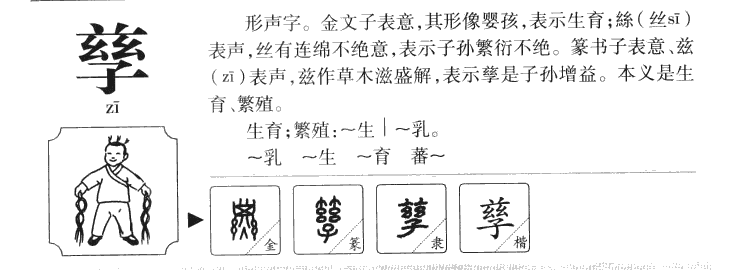 孳
zī
形声字。金文子表意,其形像婴孩,表示生育;絲(丝sī)
表声,丝有连绵不绝意,表示子孙繁衍不绝。篆书子表意、兹
(zī)表声,兹作草木滋盛解,表示孳是子孙增益。本义是生
育、繁殖。
生育;繁殖:~生|~乳。
~乳 ~生 ~育 蕃~
金 篆 隶 楷
孳